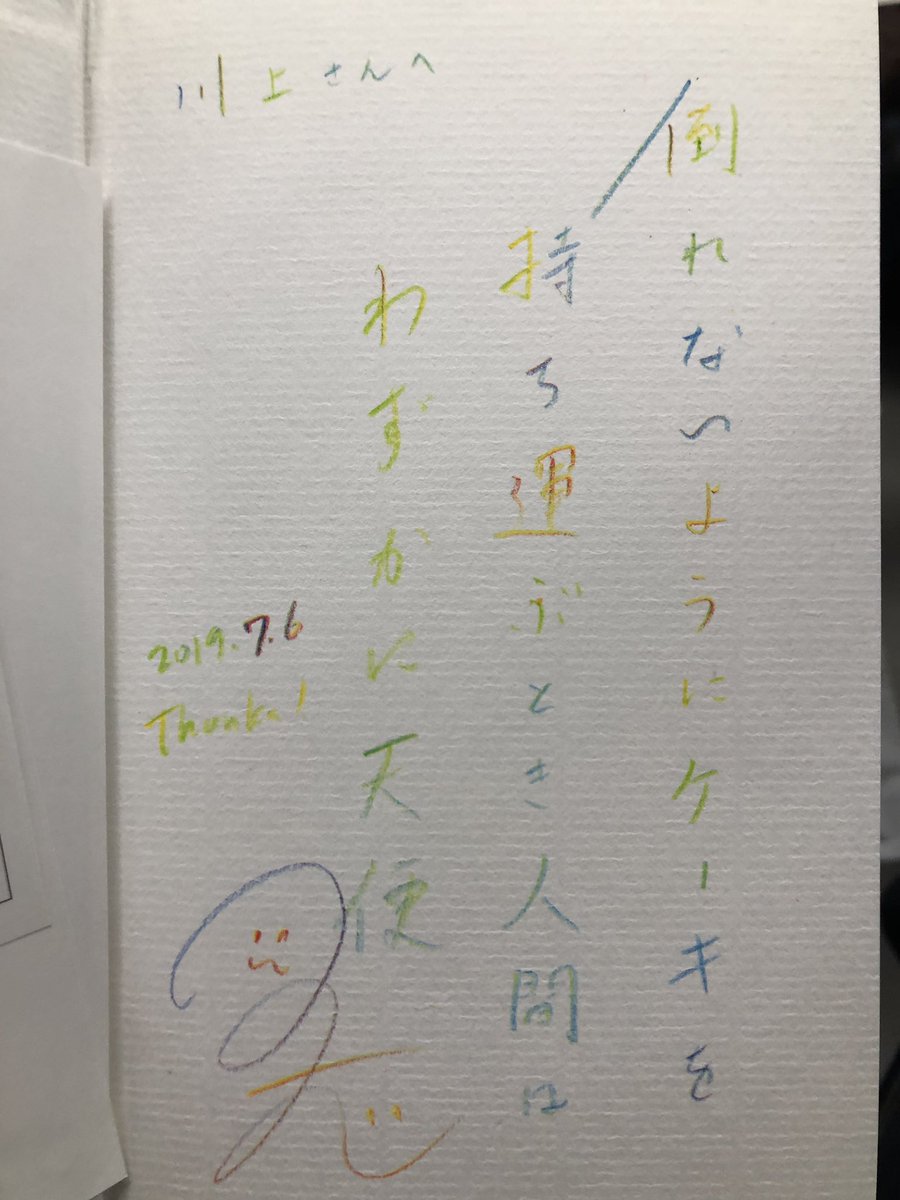 川上さんへ
倒れないようにケーキを
持ち運ぶとき人間は
わずかに天使
2019.7.6
Thanks!